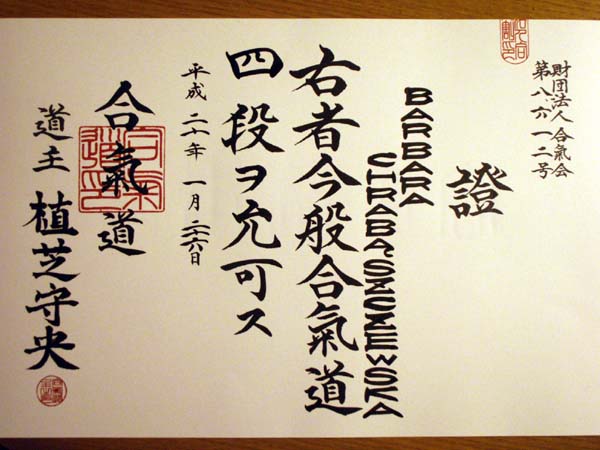 財団法人 合氣会
第八六一二号
證
BARBARA
CHRABĄSZCZEWSKA
右者今般合氣道
四段ヲ允可ス
平成二十年一月二六日
合氣道
道主 植芝守央